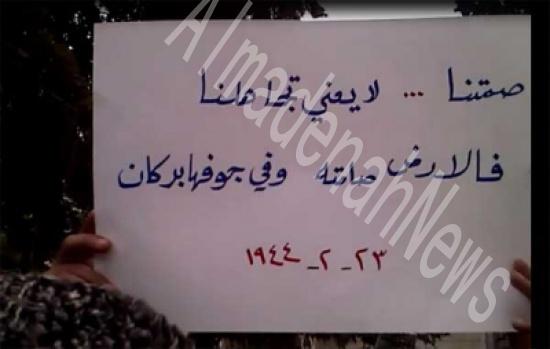 صمتنا ... لا يعني تجاهلنا
فالارض صامته وفي جوفها بركان
٢٣_٢_١٩٤٤
AlmadenahNews